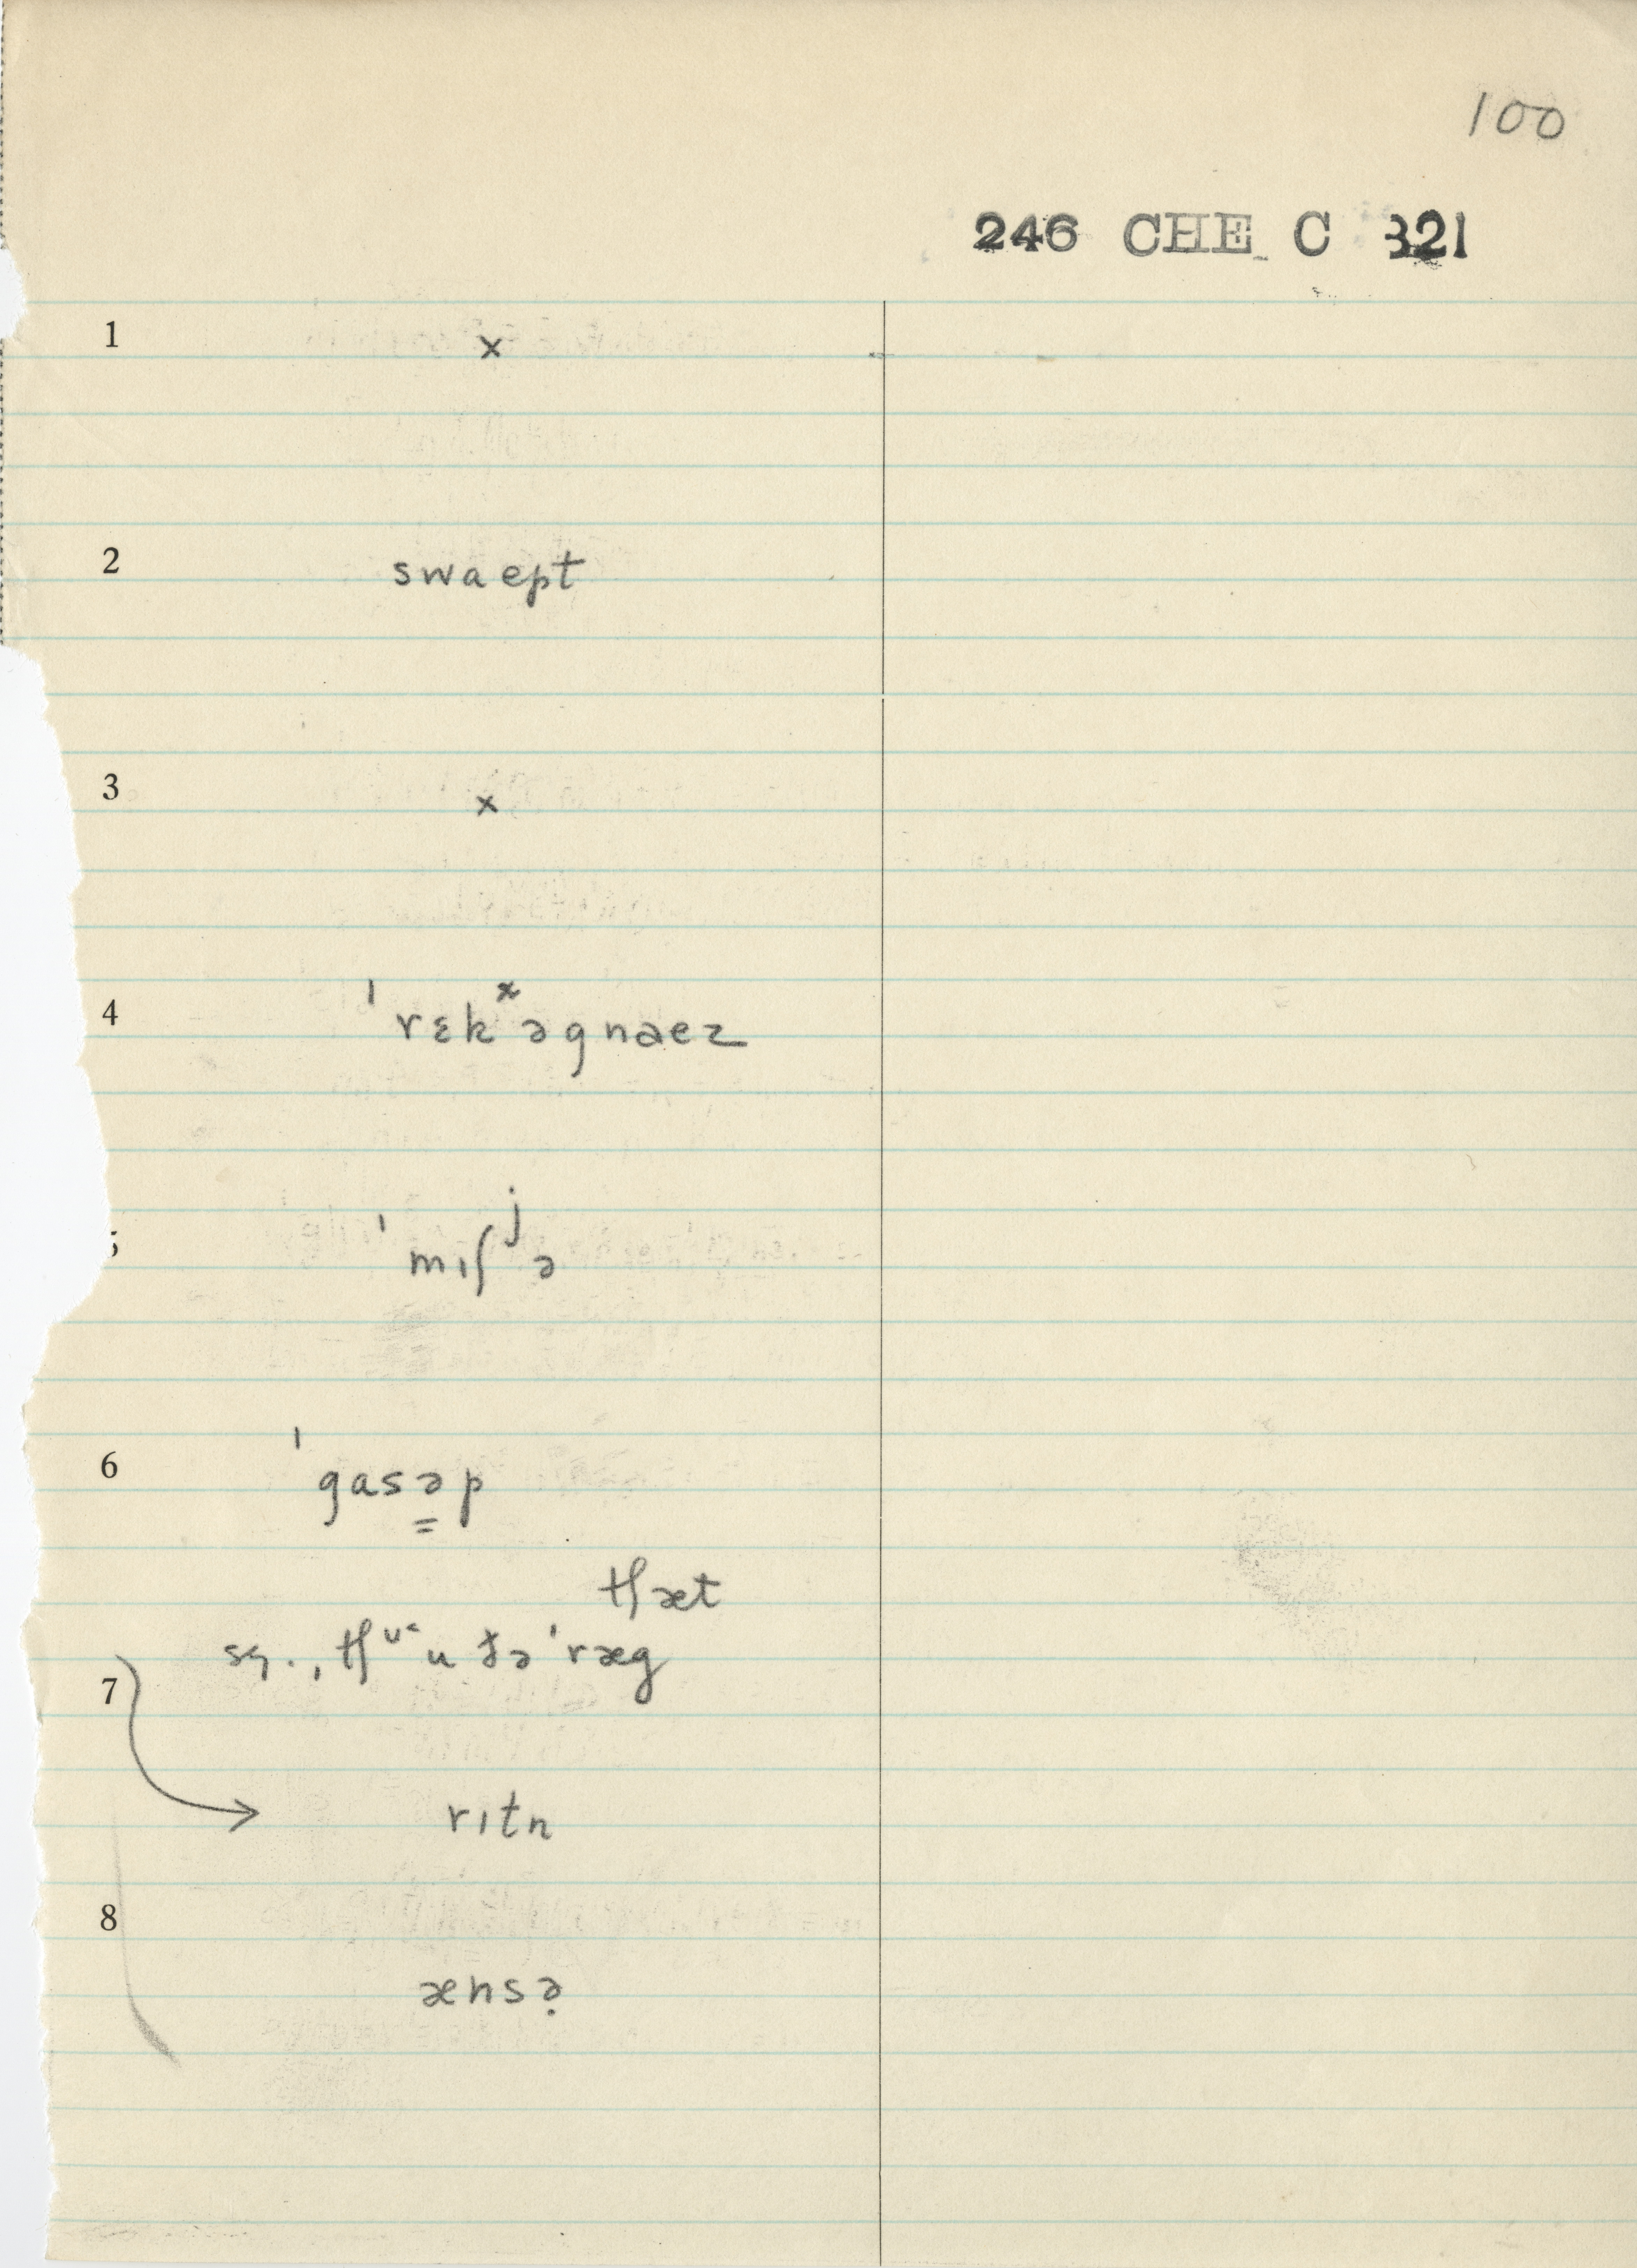 100
246 CHE C 321
1 x
2 swaept
3 x
4 ˈrɛkˣəgnaez
5 ˈmɪʃʲə
6 ˈgasə̳p
tʃæt
tʃ u ðəˈræg
7
rɪtn
8
ænsə̣